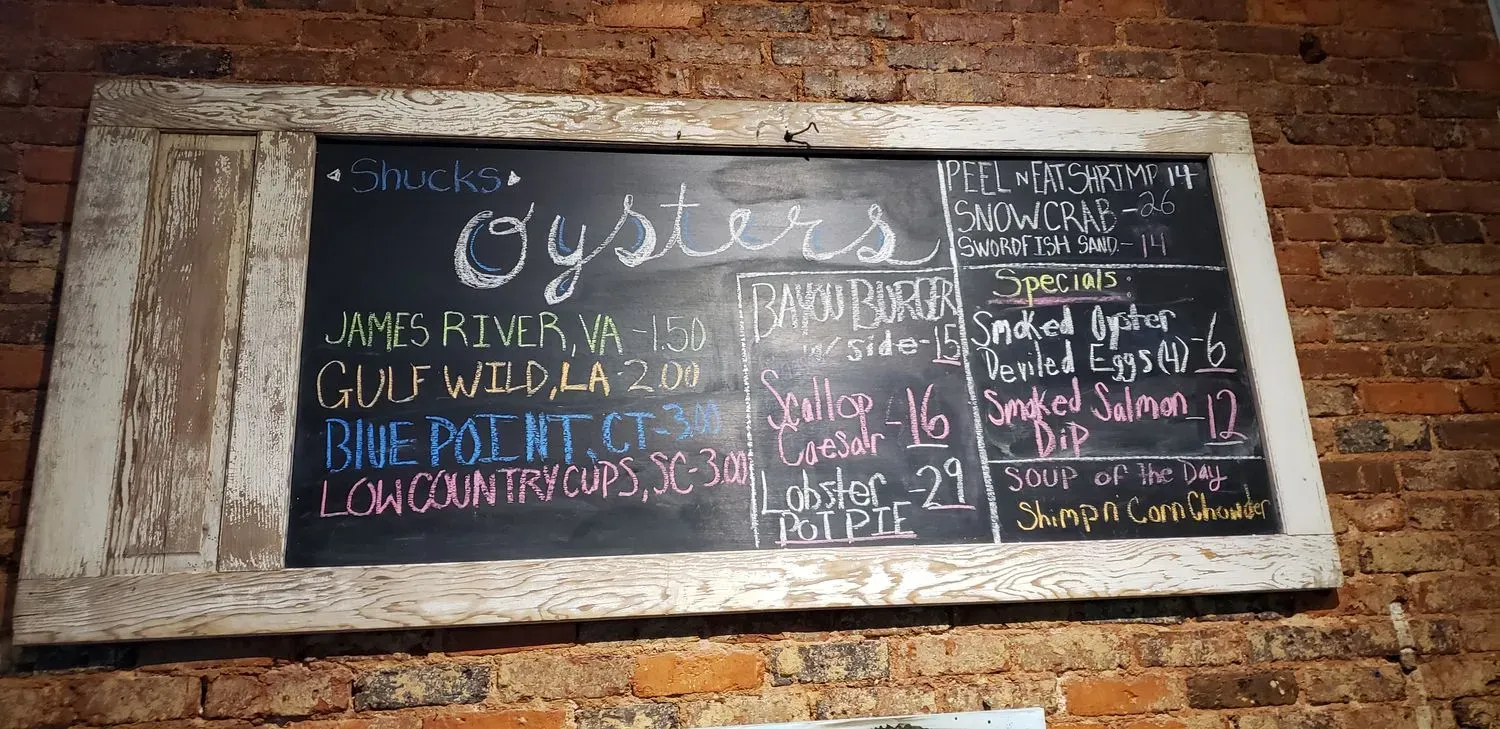 Shucks
Oysters
JAMES RIVER, VA -1.50
GULF WILD, LA -2.00
BLUE POINT, CT -3.00
LOW COUNTRY CUPS, SC -3.00
BAYOU BURGER
w/ side - 15
Scallop
Caesar - 16
Lobster - 29
POT PIE
PEEL N EAT SHRIMP 14
SNOW CRAB - 26
SWORDFISH SAND. - 14
Specials:
Smoked Oyster
Deviled Eggs (4) - 6
Smoked Salmon
Dip - 12
SOUP OF THE DAY
Shimp n' Corn Chowder